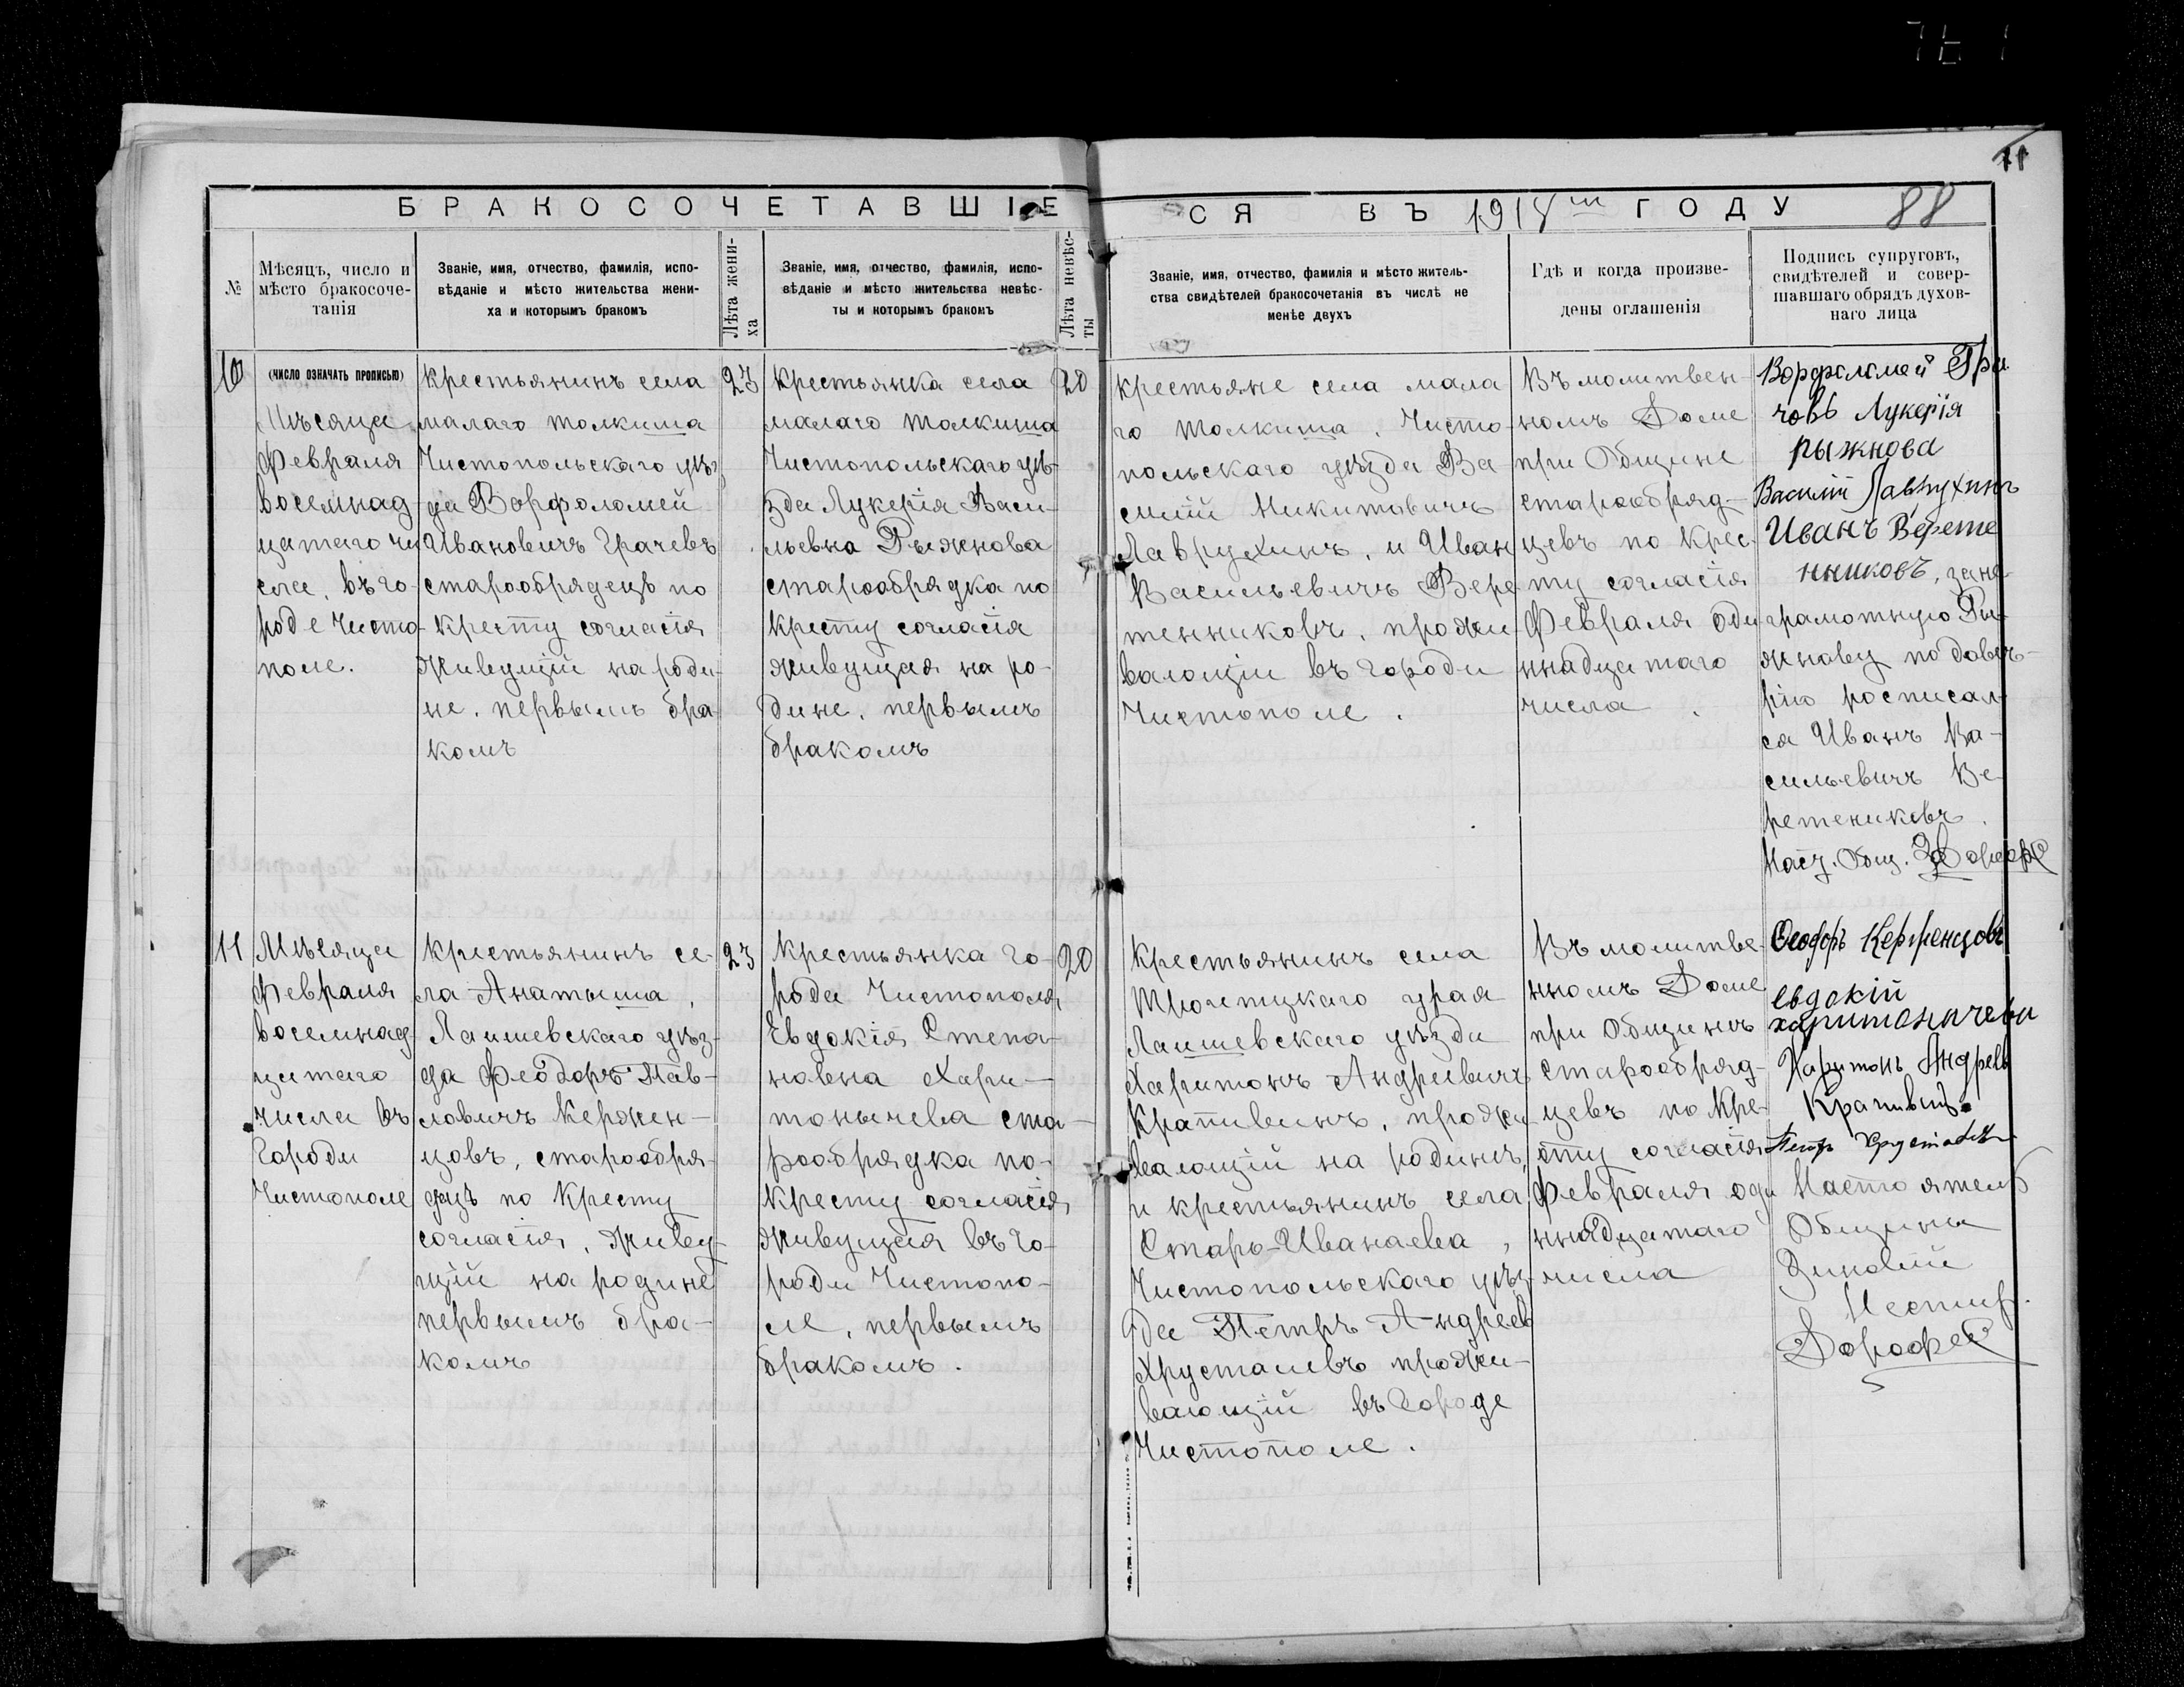 11
БРАКОСОЧЕТАВШІЕ
СЯ ВЪ 1914 ГОДУ 88
№
Мѣсяцъ, число и
мѣсто бракосоче-
танія
Званіе, имя, отчество, фамилія, испо-
вѣданіе и мѣсто жительства жени-
ха и которымъ бракомъ
Лѣта жени-
ха
Званіе, имя, отчество, фамилія, испо-
вѣданіе и мѣсто жительства невѣс-
ты и которымъ бракомъ
Лѣта невѣс-
ты
Званіе, имя, отчество, фамилія и мѣсто житель-
ства свидѣтелей бракосочетанія въ числѣ не
менѣе двухъ
Гдѣ и когда произве-
дены оглашенія
Подпись супруговъ,
свидѣтелей и совер-
шавшаго обрядъ духов-
наго лица
10
(ЧИСЛО ОЗНАЧАТЬ ПРОПИСЬЮ)
Мѣсяца
Февраля
восемнад-
цатаго чи
сла, въ го-
роде Чисто-
поле.
крестьянинъ села
малаго толкиша
Чистопольскаго уѣз
да Ворфоломей
Ивановичъ Грачевъ
старообрядецъ по
кресту согласія
живущій на роди-
не, первымъ бра
комъ
23
крестьянка села
малаго толкиша
Чистопольскаго уѣ-
зда Лукерія Васи-
льевна Рыжнова
старообрядка по
кресту согласія
живущая на ро-
дине, первымъ
бракомъ
20
крестьяне села мала
го толкиша, Чисто-
польскаго уѣзда Ва
силій Никитовичъ
Лаврухинъ, и Иван
Васильевичъ Вере
тенниковъ, прожи
вающіи въ городи
Чистополе.
Въ молитвен-
номъ Доме
при Общине
старообряд-
цевъ по крес-
ту согласія
Февраля оди
ннадцатаго
числа.
Ворфоломей Гра
човъ Лукерія
Рыжнова
Василій Лаврухинъ
Иванъ Верете
нниковъ, за не-
грамотную Ры-
жнову по довѣ-
рію росписал-
ся Иванъ Ва-
сильевичъ Ве-
ретениковъ.
Наст. Общ. З Дорофе
11
Мѣсяца
Февраля
восемнад-
цатаго
числа въ
Городи
Чистополе
крестьянинъ се-
ла Анатыша,
Лаишевскаго уѣз-
да Феодоръ Пав-
ловичъ Кержен-
цовъ, старообря-
децъ по Кресту
согласія, живу-
щій на родине
первымъ бра-
комъ
23
крестьянка го-
рода Чистополя
Евдокія Степа-
новна Хари-
тонычева ста-
рообрядка по-
кресту согласія
живущая въ го-
роди Чистопо-
ле, первымъ
бракомъ.
20
Крестьянинъ села
Троетцкаго урая
Лаишевскаго уѣзда
Харитонъ Андреивичъ
Крапивинъ, прожи
вающій на родинѣ,
и крестьянинъ села
Старо-Иванаева,
Чистопольскаго уѣз-
да Петръ Андреев
Хрусталивъ прожи-
вающій въ городе
Чистополе.
Въ молитве-
нномъ Доме
при Общинѣ
старообряд-
цевъ по кре-
сту согласія
Февраля оди
ннадцатаго
числа
Феодоръ Керженцовъ
евдокій
харитонычева
Харитонъ Андрееви
Крапивинъ
Петръ Хрусталивъ
Настоятель
Общины
Зиновій
Нестир.
Дорофее